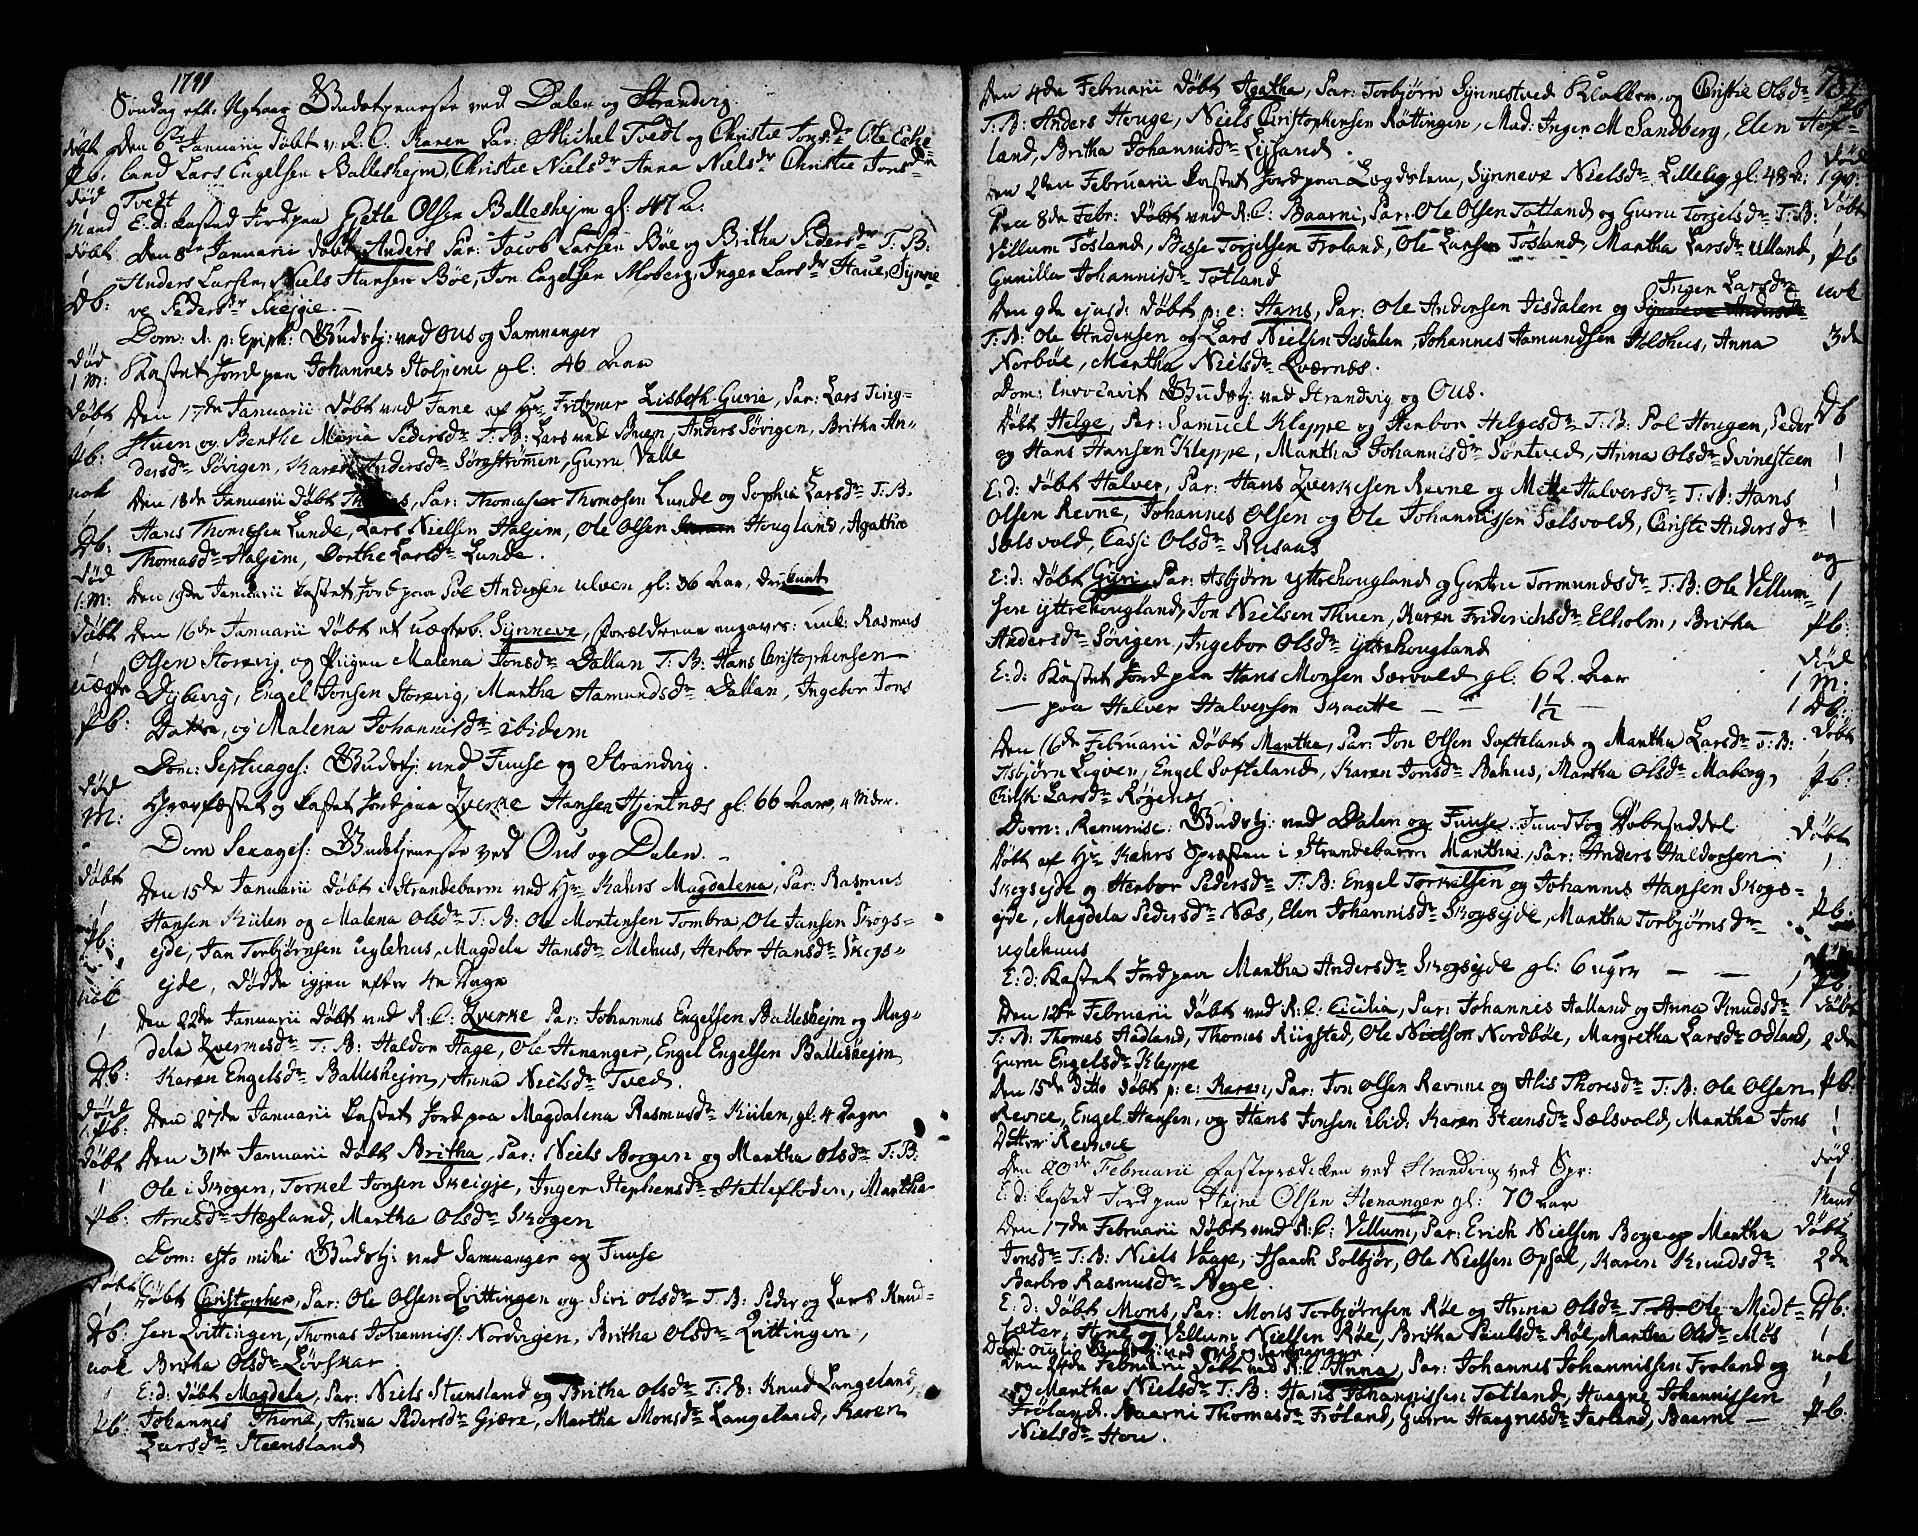 1791
Søndag eft: Nytaar Gudstjeneste ved Dalen og Strandvig.
Den 6te Januarii døbt v. R. C. Karen Par: Michel Tvedt og Christie Jonsdr Ole Eche-
land Lars Engelsen Ballesheim, Christie Nielsdr Anna Nielsdr Christie Jonsdr
Tvedt
E. d: kasted Jord paa Gietle Olsen Ballesheim gl: 47 A.
Den 8de Januarii døbt Anders Par: Jacob Larsen Bøe og Britha Pedersdr T. B:
Anders Larsen, Niels Hansen Bøe, Jon Engelsen Moberg, Inger Larsdr Haue, Synne
ve Pedersdr Skejie.
Dom: 1. p: Epiph: Gudstj: ved Ous og Samnanger
Kastet Jord paa Johannes Stolpene gl: 46 Aar
Den 17de Januarii døbt ved Fane af Hr. Fritzner Lisbeth Gurie, Par: Lars Ting-
Huen og Benthe Maria Pedersdr T. B: Lars ved Bruen, Anders Søvigen, Britha An-
dersdr Søvigen, Karen Andersdr Sørestrømen, Gurru Valle
Den 18de Januarii døbt Thomas, Par: Thomas Thomesen Lunde og Sophia Larsdr T. B.
Hans Thomesen Lunde, Lars Nielsen Haljem, Ole Olsen Hougland, Agatha
Thomasdr Haljem, Dorthe Larsdr Lunde.
Den 19de Januarii kastet Jord paa Pol Andersen Ulven gl: 36 Aar, druknet
Den 16de Januarii døbt et uægteb: Synneve, Forældrene angaves: unk: Rasmus
Olsen Storevig og Pigen Malena Jonsdr Dallan T. B: Hans Christophersen
Dybevig, Engel Jonsen Storevig, Martha Aamundsdr Dallan, Ingebor Jons
Datter, og Malena Johannisdr ibidem
Dom: Septuages: Gudstj: ved Fuuse og Strandvig.
Gravfæstet og kastet Jord paa Qverke Hansen Hientnæs gl: 66 Aar, 4 Mdr.
Dom Sexages: Gudstjeneste ved Ous og Dalen.
Den 15de Januarii døbt i Strandebarm ved Hr. Kahrs Magdalena, Par: Rasmus
Hansen Kiilen og Malena Olsdr T. B: Ole Mortensen Tombra, Ole Jansen Skogs-
ejde, Jan Torbjørnsen Uglehus, Magdela Hansdr Mehus, Herbor Hansdr Skogs-
ejde, døde igjen efter 4re Dage
Den 22de Januarii døbt ved R. C: Qverke Par: Johannes Engelsen Ballesheim og Mag-
dela Qverkesdr T. B: Haldor Hage, Ole Henanger, Engel Engelsen Ballesheim
Karen Engelsdr Ballesheim, Anna Nielsdr Tved.
Den 27de Januarii kastet Jord paa Magdalena Rasmusdr Kiilen, gl: 4 Dage
Den 31te Januarii døbt Britha, Par: Niels Borgen og Martha Olsdr T. B:
Ole i Skogen, Torkel Jonsen Skeigje, Inger Stephensdr Hetlefloden, Martha
Arnesdr Hægland, Martha Olsdr Skogen
Dom: esto mihi Gudstj: ved Samnanger og Fuuse
Døbt Christopher, Par: Ole Olsen Qvittingen og Siri Olsdr T. B: Peder og Lars Knud-
sen Qvittingen, Thomas Johannis: Nordvigen, Britha Olsdr Qvittingen,
Britha Olsdr Løvskar
E: d: døbt Magdela, Par: Niels Steensland og Britha Olsdr T. B: Knud Langeland,
Johannes Thone, Anna Pedersdr Gjære, Martha Monsdr Langeland, Karen
Larsdr Steensland
Den 4de Februarii døbt Agatha, Par: Torbjørn Synnestved Klokker, og Christie Olsdr
T. B: Anders Houge, Niels Christophersen Røttingen, Mad: Inger M Sandberg, Elen Hof-
land, Britha Johannisdr Lysand.
Den 2den Februarii kastet Jord paa Logdslem, Synneve Nielsdr Lillelig gl: 48 A.
Den 8de Febr: døbt ved R. C: Baarni, Par: Ole Olsen Totland og Gurru Torgielsdr T. B:
Villum Tøsland, Basse Torjelsen Froland, Ole Larsen Tøsland, Martha Larsdr Ulland,
Gunilla Johannisdr Totland
Inger Larsdr
Den 9de ejusd: døbt p: e: Hans, Par: Ole Andersen Jisdalen og
T. B: Ole Andersen og Lars Nielsen Jisdalen, Johannes Aamundsen Holdhus, Anna
Norbøe, Martha Nielsdr Qværnæs.
Dom: Invocavit Gudstj: ved Strandvig og Ous.
Døbt Helge, Par: Samuel Kleppe og Herbor Helgesdr T. B: Pol Hougen, Peder
og Hans Hansen Kleppe, Martha Johannisdr Søntved, Anna Olsdr Svinesteen
E: d: døbt Halver, Par: Hans Qverkesen Revne og Mette Halversdr T. B: Hans
Olsen Revne, Johannes Olsen og Ole Johannissen Sælsvold, Christi Andersdr
Sælsvold, Cassi Olsdr Rusaas
E: d: døbt Gyri Par: Asbjørn Yttrehougland og Gentru Tormundsdr T. B: Ole Vellum-
sen Yttrehougland, Jon Nielsen Thuen, Karen Friderichsdr Elholm, Britha
Andersdr Søvigen, Ingebor Olsdr Yttrehougland
E: d: Kastet Jord paa Hans Monsen Særvold gl: 62 Aar
— paa Halver Halversen Skaatte — — 1½ —
Den 16de Februarii døbt Martha, Par: Jon Olsen Softeland og Martha Larsdr T. B:
Asbjørn Ligven, Engel Softeland, Karen Jonsdr Bahus, Martha Olsdr Moberg,
Christi Larsdr Røgenes
Dom: Reminisc: Gudstj: ved Dalen og Fuuse.
Døbt af Hr. Kahrs Præsten i Strandebarm Martha, Par: Anders Haldorsen
Skogsejde og Herbor Pedersdr T. B: Engel Torkelsen og Johannis Hansen Skogs-
ejde, Magdela Pedersdr Næs, Elen Johannisdr Skogsejde, Martha Torbjørnsdr
Uglehuus
E: d: Kastet Jord paa Martha Andersdr Skogsejde gl: 6 uger — —
Den 12te Februarii døbt ved R. C: Cicilia, Par: Johannes Halland og Anna Knudsdr
T. B: Thomas Hadland, Thomas Rügstad, Ole Nielsen Nordbøe, Margretha Larsdr Odland,
Gurru Engelsdr Kleppe
Den 15de Ditto døbt p: e: Karen, Par: Jon Olsen Revne og Alis Thoresdr T. B: Ole Olsen
Revne, Engel Hansen, og Hans Jonsen ibid: Karen Steensdr Sælsvold, Martha Jons
Datter Revne
Den 20de Februarii Fasteprædicken ved Strandvig ved Spr:
E: d: kasted Jord paa Hejne Olsen Henanger gl: 70 Aar
Den 17de Februarii døbt ved R. C: Villum, Par: Erich Nielsen Boge og Martha
Jonsdr T. B: Niels Vaage, Isaach Solbjør, Ole Nielsen Opsal, Karen Knudsdr
Barbro Rasmusdr Bege.
E: d: døbt Mons, Par: Mons Torbjørnsen Røe og Anna Olsdr T. B: Ole Midt-
sæter, Arne og Villum Nielsen Røe, Britha Paulsdr Røe, Martha Olsdr Møs
Dom: Oculi Gudstj: ved Ous og Samnanger
Den 24de Februarii døbt ved R. C: Anna, Par: Johannes Johannissen Froland og
og Martha Nielsdr T. B: Hans Johannissen Totland, Haagne Johannissen
Frøland. Baarni Thomasdr Frøland, Gurru Haagnesdr Jarland, Baarni —
Nielsdr Hou.